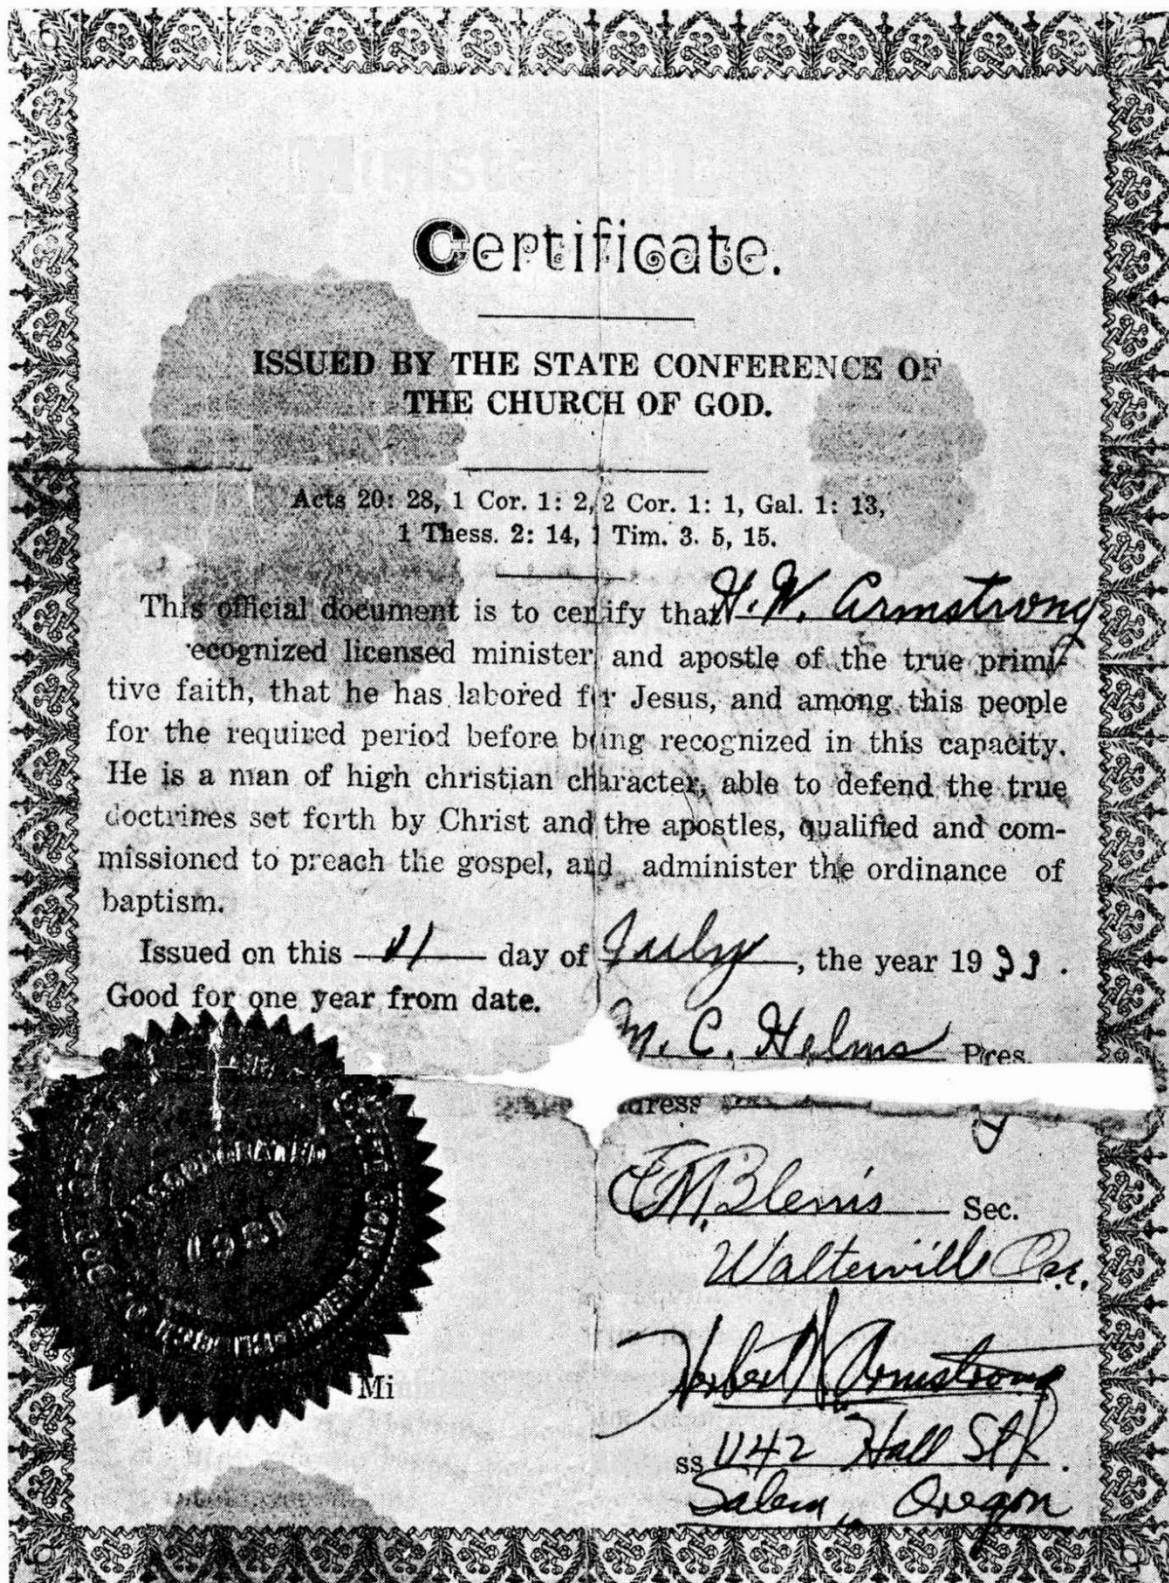 Certificate.
ISSUED BY THE STATE CONFERENCE OF
THE CHURCH OF GOD.
Acts 20: 28, 1 Cor. 1: 2, 2 Cor. 1: 1, Gal. 1: 13,
1 Thess. 2: 14, 1 Tim. 3. 5, 15.
This official document is to certify that H. W. Armstrong
ecognized licensed minister and apostle of the true primi-
tive faith, that he has labored for Jesus, and among this people
for the required period before being recognized in this capacity.
He is a man of high christian character, able to defend the true
doctrines set forth by Christ and the apostles, qualified and com-
missioned to preach the gospel, and administer the ordinance of
baptism.
Issued on this 11 day of July, the year 1933.
Good for one year from date.
M. C. Helms Pres.
dress
INCORPORATED
1931
CHURCH OF GOD
E. M. Blenis Sec.
Walterville Ore.
Herbert W. Armstrong
Mi
ss 1142 Hall St
Salem, Oregon